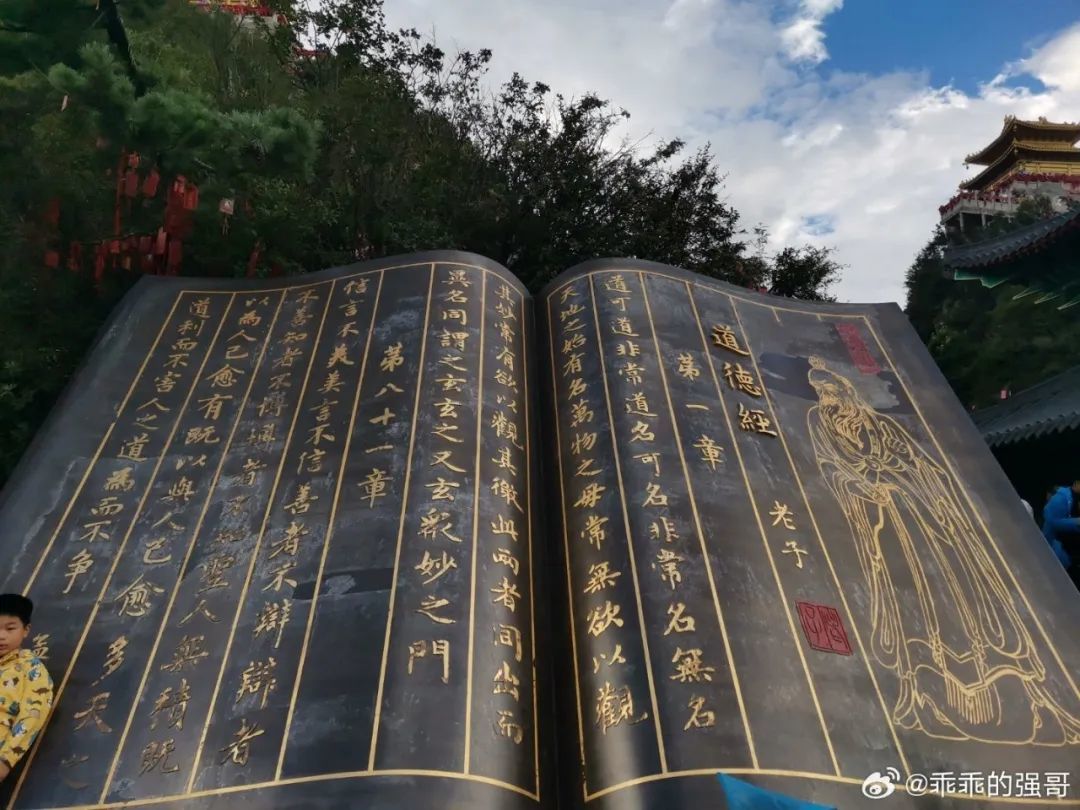 道德經 老子
第一章
道可道非常道名可名非常名無名
天地之始有名萬物之母常無欲以觀
其妙常有欲以觀其徼此兩者同出而
異名同謂之玄玄之又玄衆妙之門
第八十一章
信言不美美言不信善者不辯辯者
不善知者不博博者不知聖人無積既
以為人己愈有既以與人己愈多天之
道利而不害人之道為而不争
@乖乖的强哥